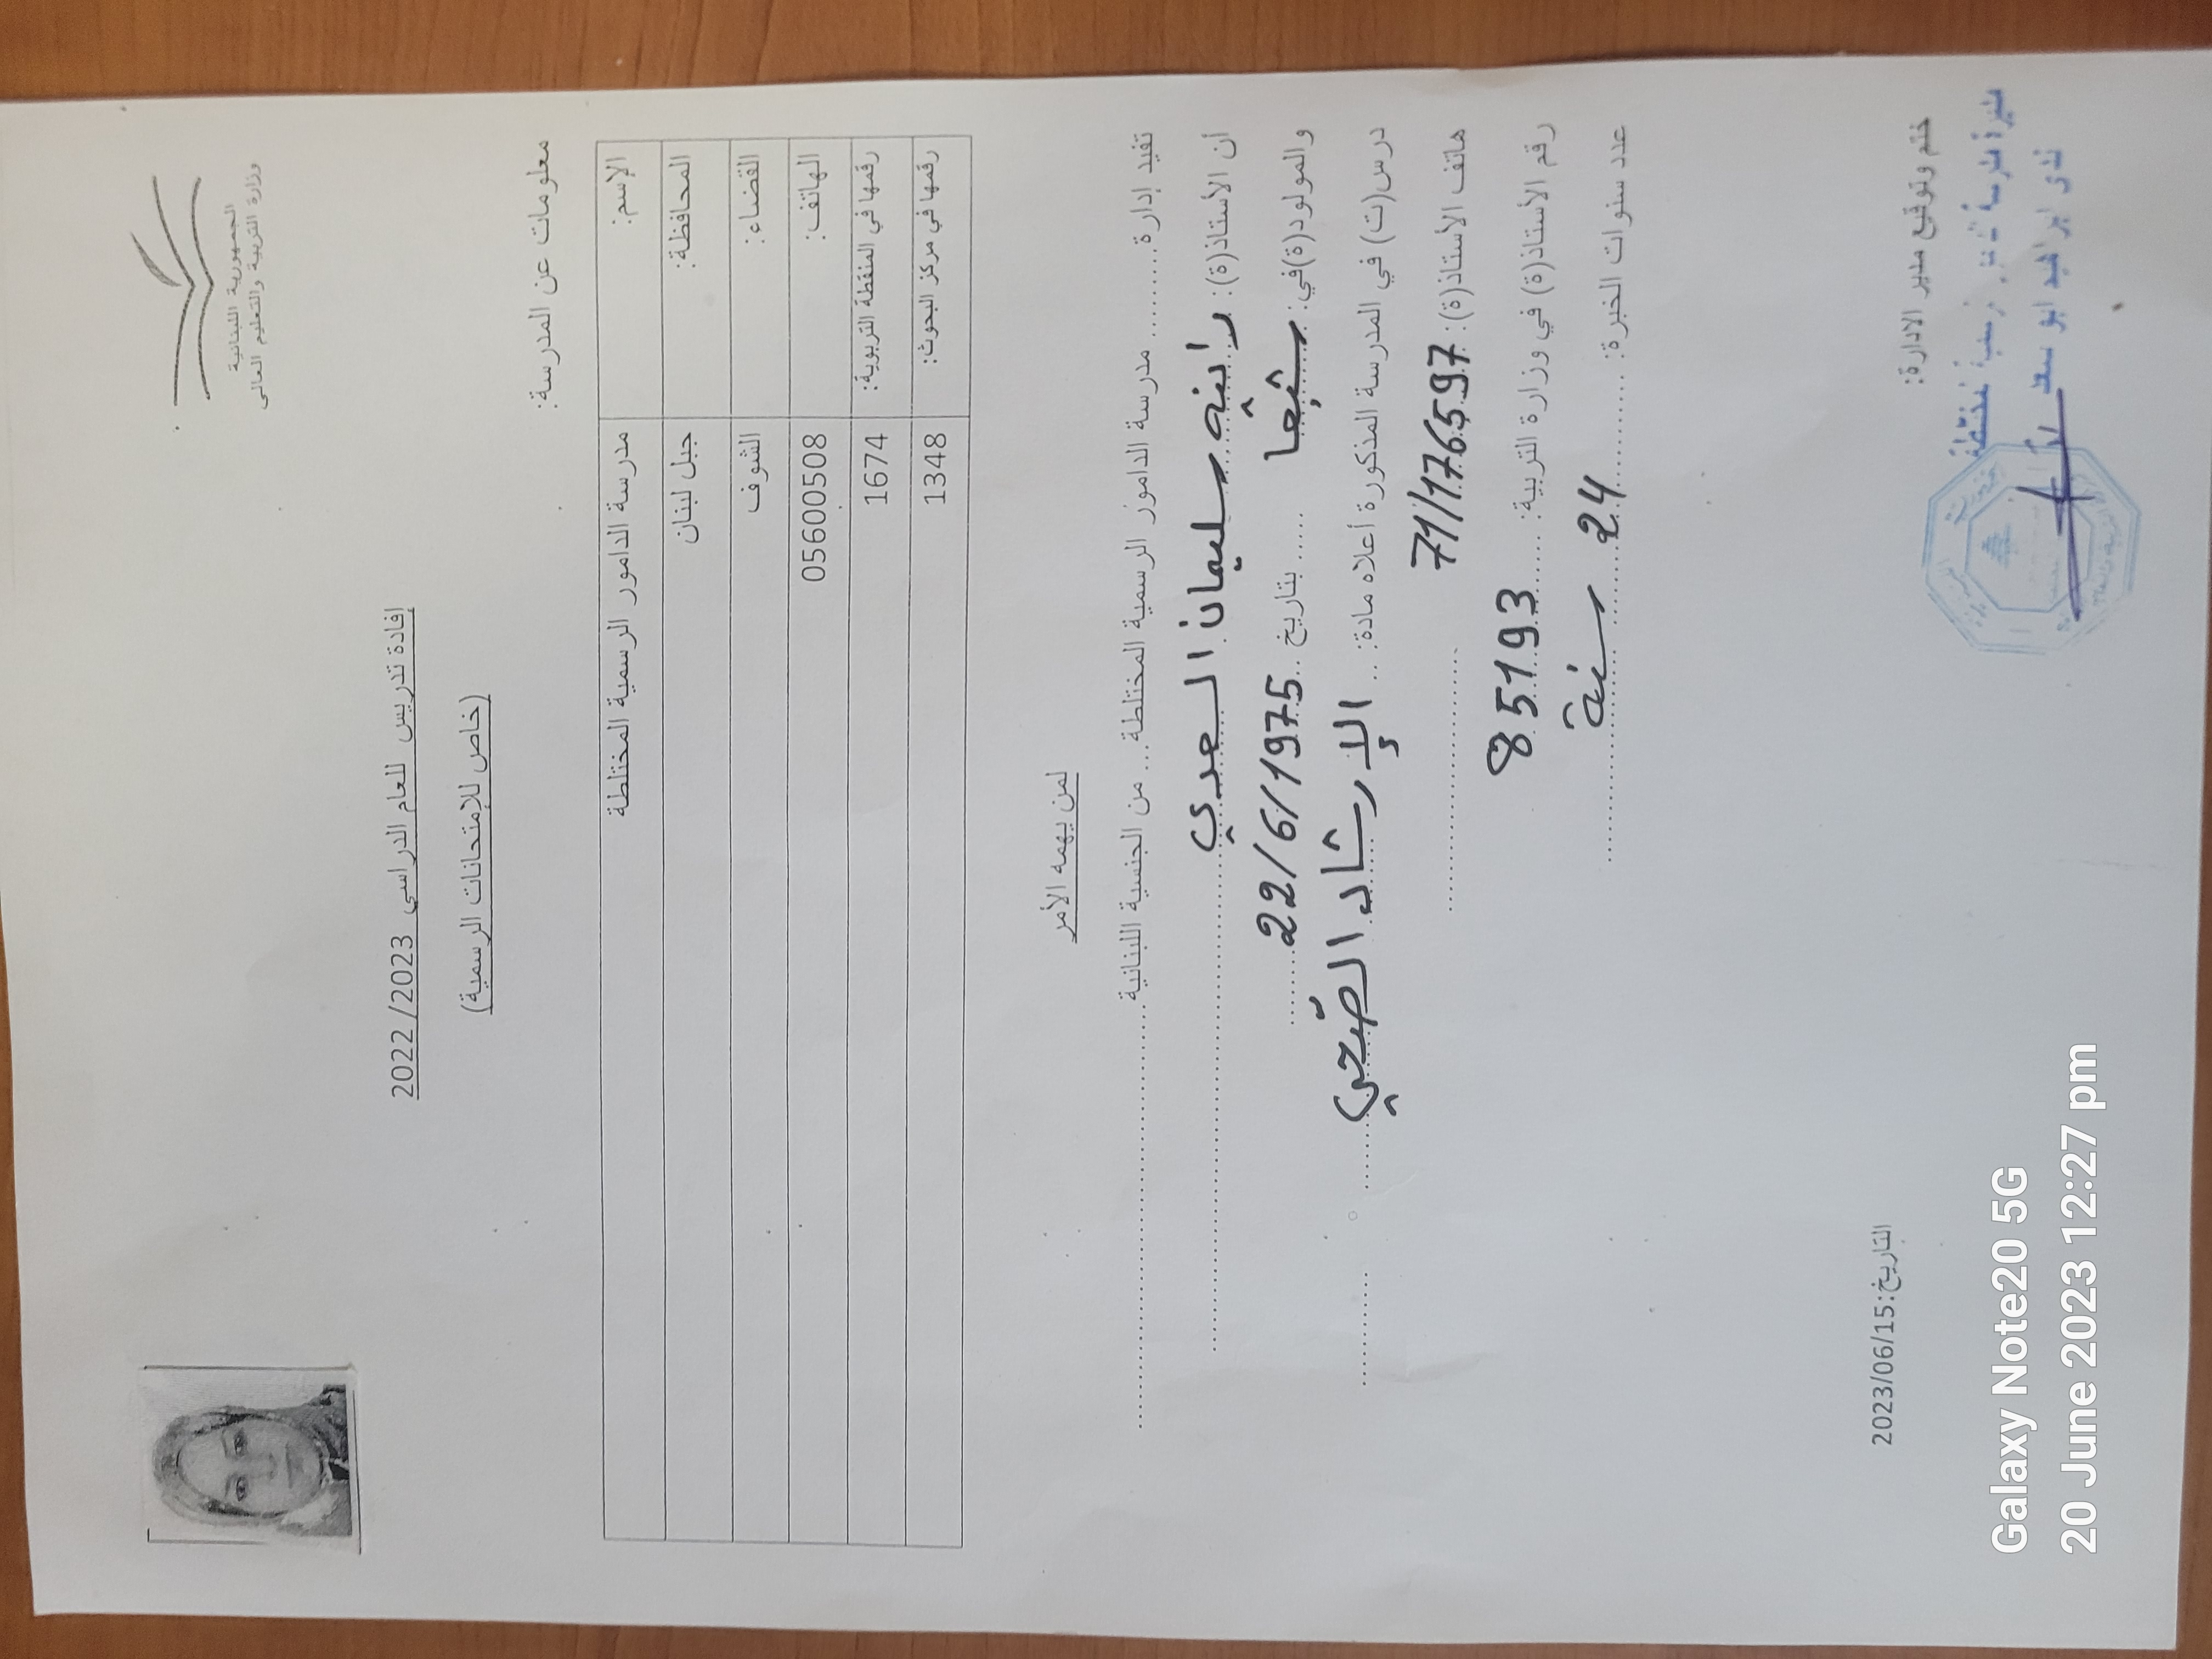 الجمهورية اللبنانية
وزارة التربية والتعليم العالي
إفادة تدريس للعام الدراسي 2022/2023
(خاص للإمتحانات الرسمية)
معلومات عن المدرسة:
الإسم: مدرسة الدامور الرسمية المختلطة
المحافظة: جبل لبنان
القضاء: الشوف
الهاتف: 05600508
رقمها في المنقطة التربوية: 1674
رقمها في مركز البحوث: 1348
لمن يهمه الأمر
تفيد إدارة......... مدرسة الدامور الرسمية المختلطة... من الجنسية اللبنانية.......
أن الأستاذ(ة): رانيه سليمان السعدي
والمولود(ة)في: شبعا ..... بتاريخ ..22/6/1975
درس(ت) في المدرسة المذكورة أعلاه مادة: .. الإرشاد الصّحي
هاتف الأستاذ(ة): 71/176597
رقم الأستاذ(ة) في وزارة التربية: ...... 85193
عدد سنوات الخبرة: .......... 24 سنة
التاريخ:2023/06/15
ختم وتوقيع مدير الادارة:
ابو سعد
Galaxy Note20 5G
20 June 2023 12:27 pm